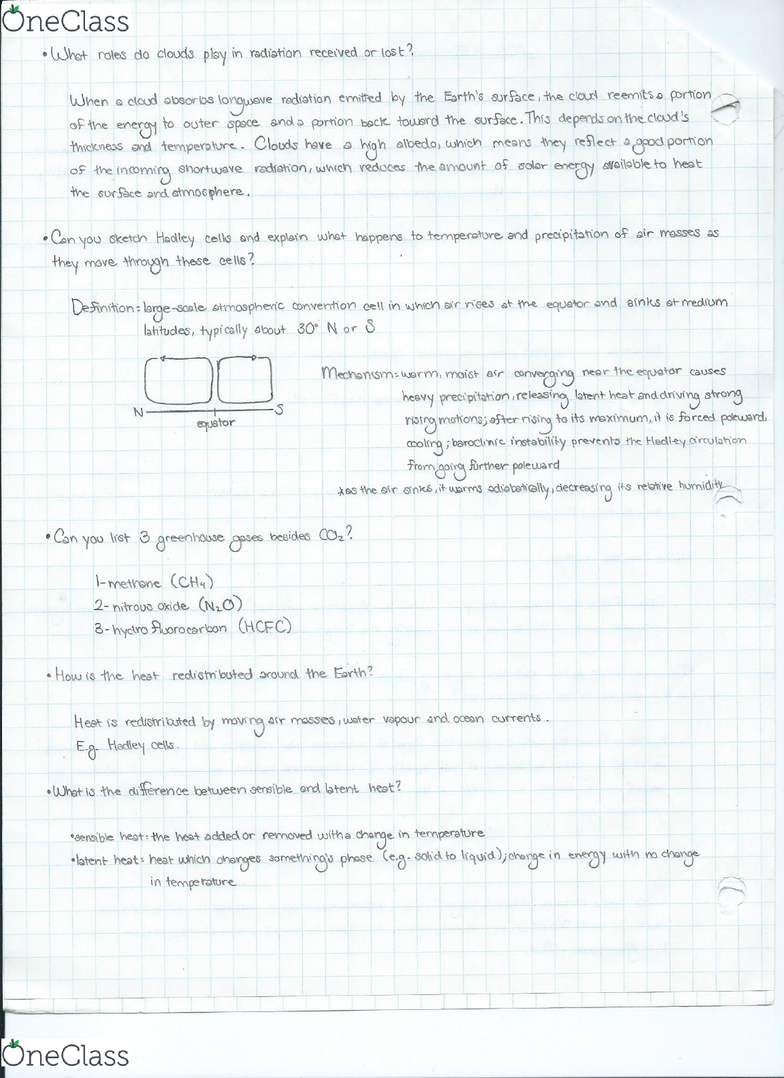 OneClass
• What roles do clouds play in radiation received or lost?
When a cloud absorbs longwave radiation emitted by the Earth's surface, the cloud reemits a portion
of the energy to outer space and a portion back toward the surface. This depends on the cloud's
thickness and temperature. Clouds have a high albedo, which means they reflect a good portion
of the incoming shortwave radiation, which reduces the amount of solar energy available to heat
the surface and atmosphere.
• Can you sketch Hadley cells and explain what happens to temperature and precipitation of air masses as
they move through these cells?
Definition: large-scale atmospheric convention cell in which air rises at the equator and sinks at medium
latitudes, typically about 30° N or S
N
S
equator
Mechanism: warm, moist air converging near the equator causes
heavy precipitation, releasing latent heat and driving strong
rising motions; after rising to its maximum, it is forced poleward,
cooling; baroclinic instability prevents the Hadley circulation
from going further poleward
*as the air sinks, it warms adiabatically, decreasing its relative humidity
• Can you list 3 greenhouse gases besides CO₂?
1- methane (CH₄)
2- nitrous oxide (N₂O)
3- hydrofluorocarbon (HCFC)
• How is the heat redistributed around the Earth?
Heat is redistributed by moving air masses, water vapour and ocean currents.
E.g. Hadley cells.
• What is the difference between sensible and latent heat?
• sensible heat: the heat added or removed with a change in temperature
• latent heat: heat which changes something's phase (e.g. solid to liquid); change in energy with no change
in temperature
OneClass